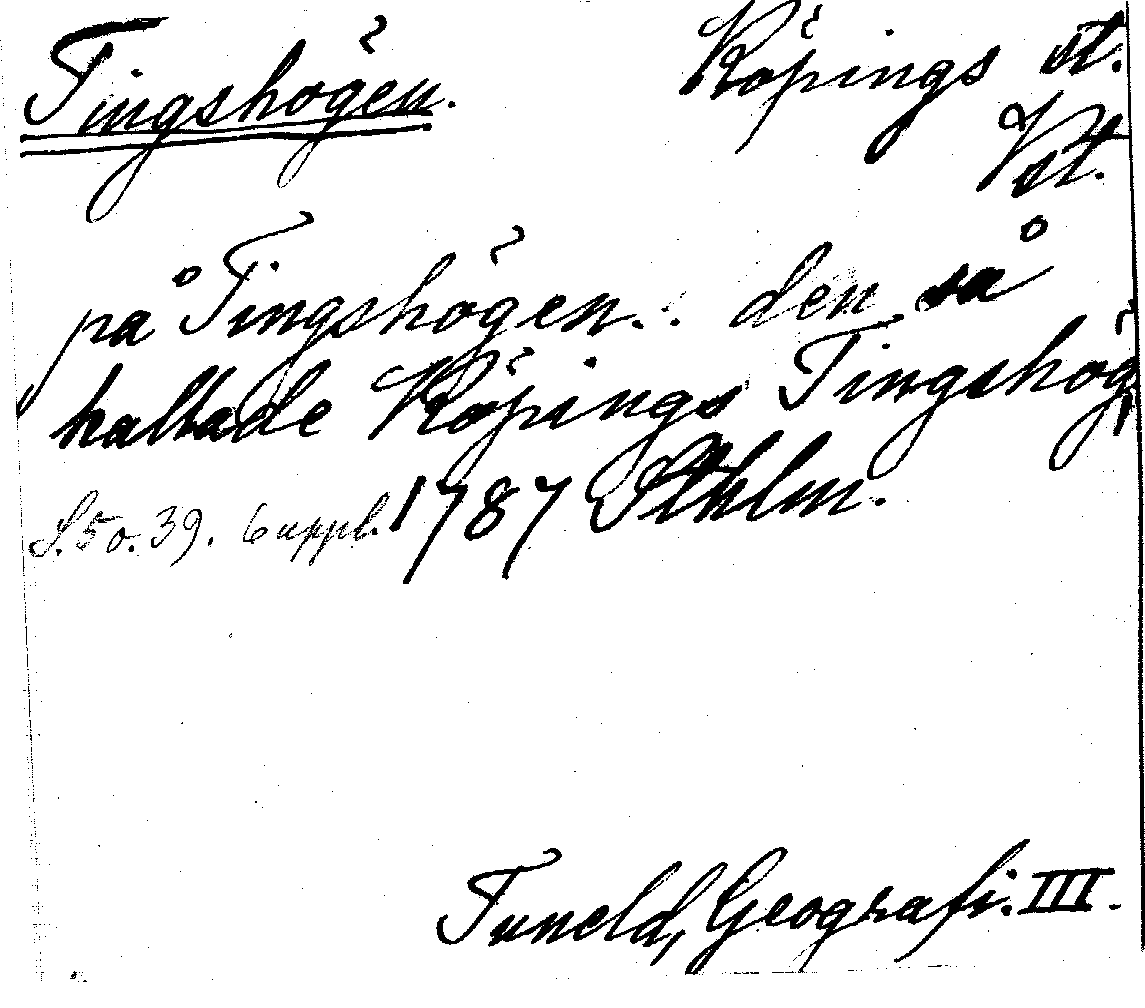 Tingshögen. Köpings st.
Vst.
på Tingshögen. . den så
kallade Köpings Tingshög,
S. 5 o. 39. 6 uppl. 1787 Sthlm.
Tuneld, Geografi. III.